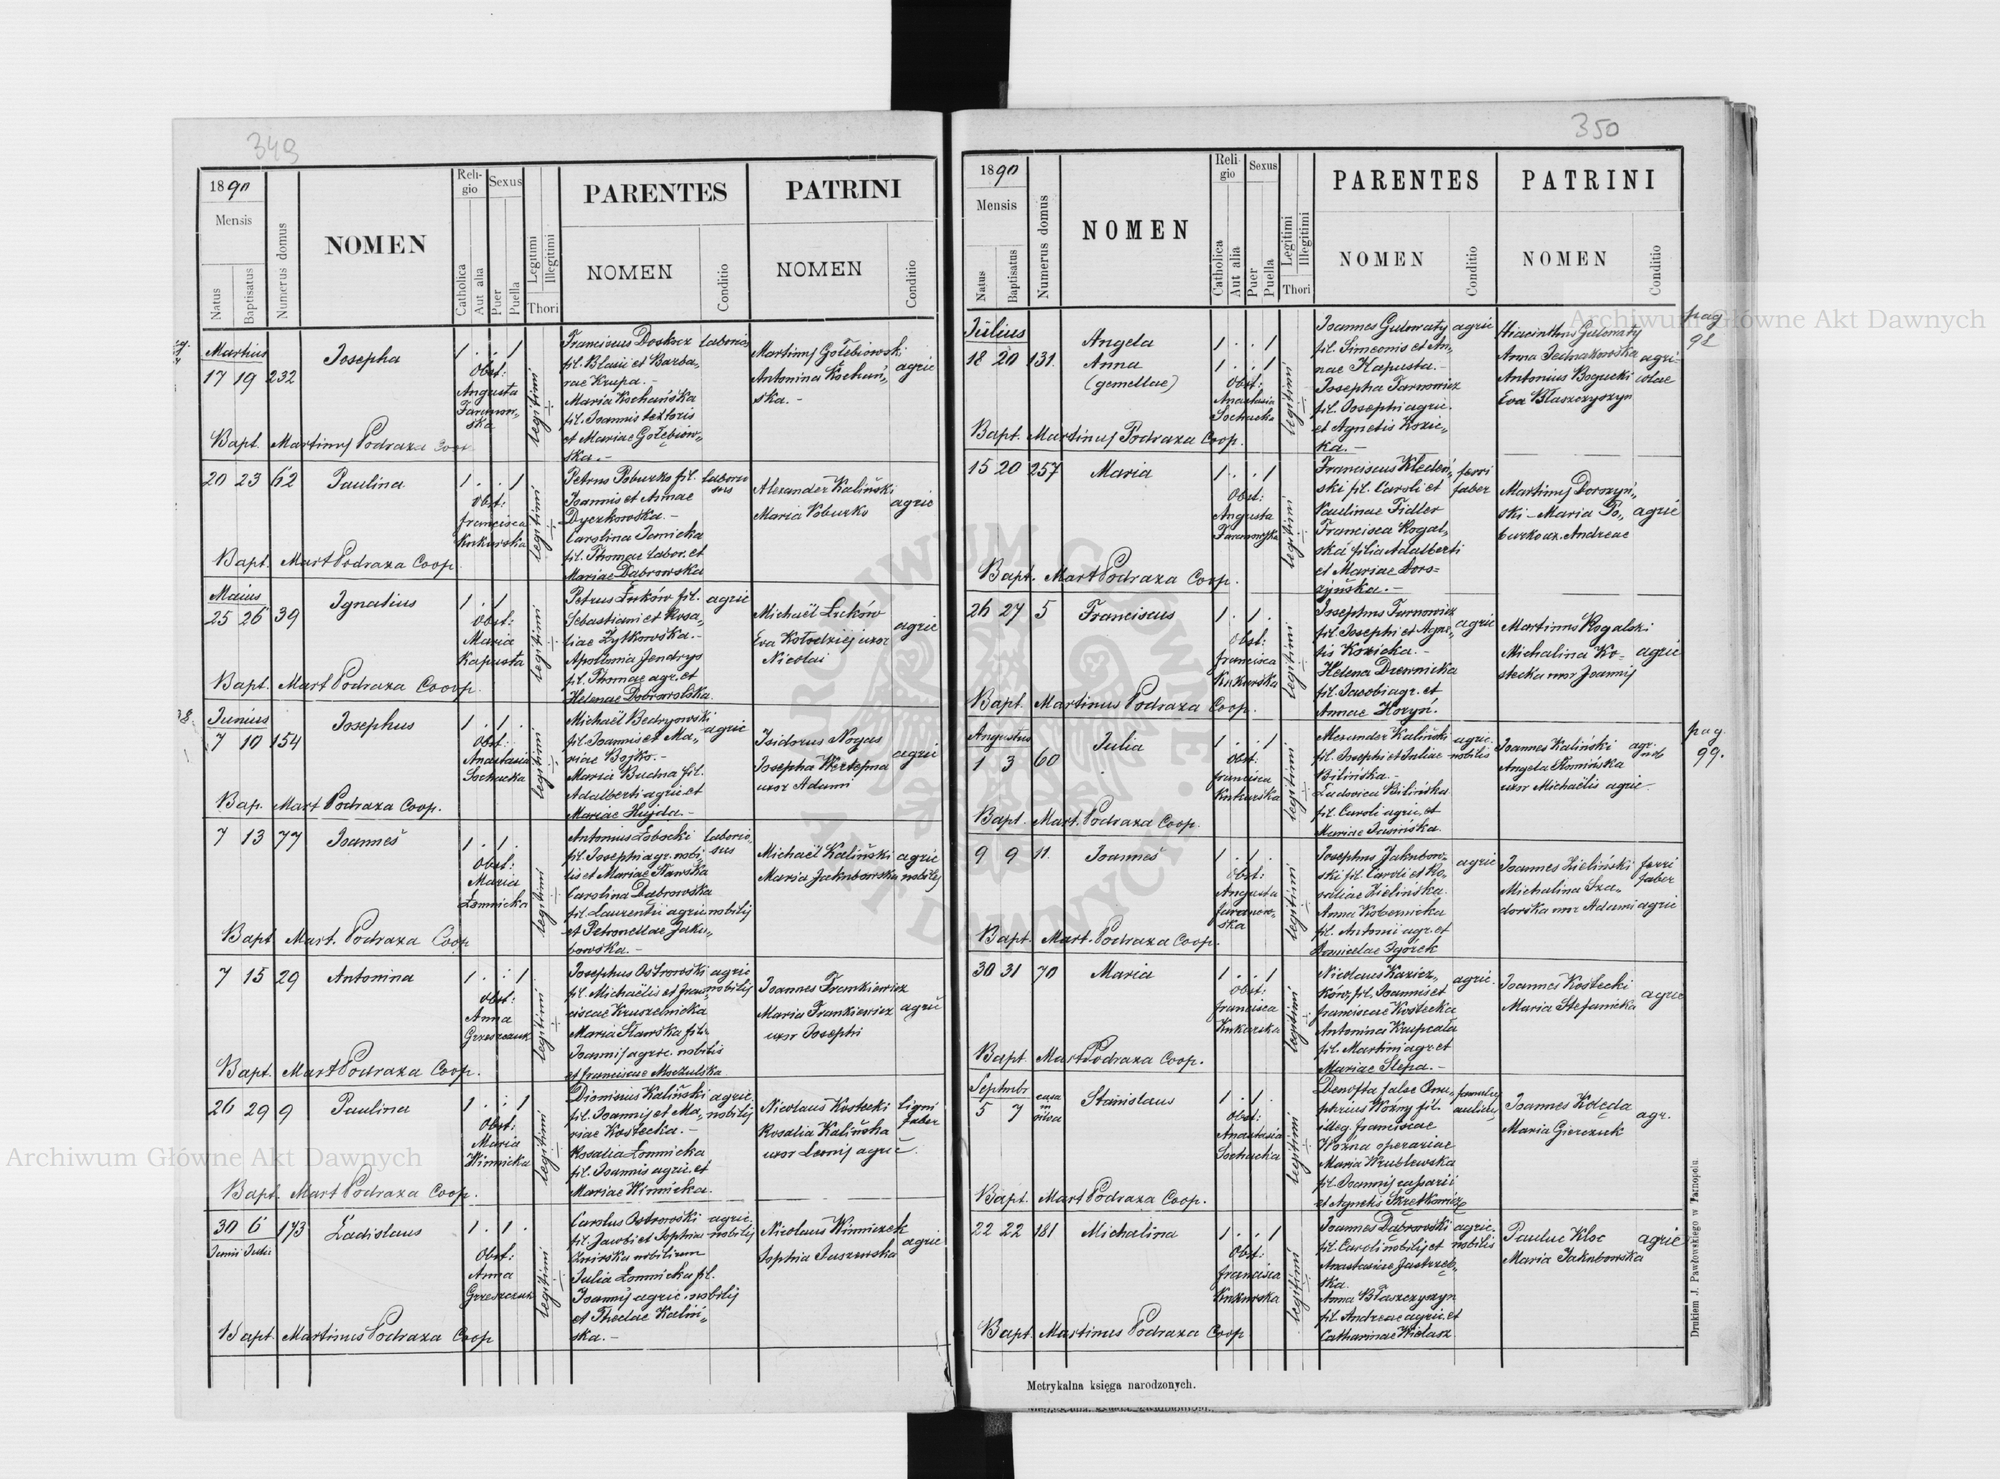 349
1890
Mensis
Natus
Baptisatus
Numerus domus
NOMEN
Religio
Catholica
Aut alia
Sexus
Puer
Puella
Legitimi
Illegitimi
Thori
PARENTES
NOMEN
Conditio
PATRINI
NOMEN
Conditio
Martius
17 19 232 Josepha
1 . . 1
Obst:
Angusta
legitimi
fil. Blasii et Barba,
rae Krupa.-
Maria Kochańska
fil. Joannis textoris
et Mariae Gołębiow,,
ska.-
Martinus Gołębiowski
Antonina Kochań,,
ska.-
agric
Bapt. Martinus Podraza Coop.
20 23 62 Paulina
1 . . 1
Obst:
francisca
Kukurska
legitimi
Petrus Poburko fil.
Joannis et Annae
Dyczkowska.-
Carolina Janicka
fil. Thomae labor. et
Mariae Dąbrowska
laborio
sus
Alexander Kaliński
Maria Poburko
agric
Bapt. Mart Podraza Coop.
Maius
25 26 39 Ignatius
1 . 1
Obst:
Maria
Kapusta
legitimi
Petrus Łuków fil.
Sebastiani et Rosa,
liae Żytkowska.-
Apollonia Jendrys
fil. Thomae agr. et
Helenae Dobrowolska.
agric
Michaël Łuków
Eva Kołodziej uxor
Nicolai
agric
Bapt. Mart Podraza Coop.
Junius
7 10 154 Josephus
1 . 1 .
Obst:
Anastasia
Sochacka
legitimi
fil. Joannis et Ma,
riae Bojko.-
Maria Budna fil.
Adalberti agric. et
Mariae Hujda.-
agric
Isidorus Nogas
uxor Adami
agric
Bap. Mart Podraza Coop.
7 13 77 Joannes
1 . 1 .
Obst:
Maria
Łomnicka
legitimi
fil. Josephi agr. nobi
lis et Mariae Sławska
Carolina Dąbrowska
fil. Laurentii agric nobilis
et Petronellae Jaku,,
bowska.-
laborio,
sus
Michaël Kaliński
Maria Jakubowska
agric
nobilis
Bapt Mart. Podraza Coop
7 15 29 Antonina
1 . : 1
Obst:
Anna
Grzeszczuk
legitimi
Josephus Ostrowski
fil. Michaëlis et fran,
ciscae Kruszelnicka
Maria Sławska fil.
Joannis agric. nobilis
et franciscae Moczulska
agric
nobilis
Joannes Frankiewicz
Maria Frankiewicz
uxor Josephi
agric
Bapt. Mart Podraza Coop.
26 29 9 Paulina
1 . : 1
Obst:
Maria
Winnicka
legitimi
Dionisius Kaliński
fil. Joannis et Ma,
riae Kostecka.-
Rosalia Łomnicka
fil. Joannis agric. et
Mariae Winnicka.
agric.
nobilis
Nicolaus Kostecki
Rosalia Kalińska
uxor Leonis agric
ligni
faber
Bapt. Mart Podraza Coop.
30 6 173 Ladislaus
Junii Julii
1 . 1 .
Obst:
Anna
Grzeszczuk
legitimi
Carolus Ostrowski
fil. Jacobi et Sophiae
Żnirska nobilium
Julia Łomnicka fil.
Joannis agric. nobilis
et Theclae Kaliń,,
ska.-
agric.
nobilis
Nicolaus Winniczek
Sophia Juszewska
agric
Bapt. Martinus Podraza Coop
350
1890
Mensis
Natus
Baptisatus
Numerus domus
NOMEN
Religio
Catholica
Aut alia
Sexus
Puer
Puella
Legitimi
Illegitimi
Thori
PARENTES
NOMEN
Conditio
PATRINI
NOMEN
Conditio
pag
92
Julius
18 20 131. Angela
Anna
(gemellae)
1 . . 1
Obst:
Anastasia
Sochacka
legitimi
fil. Simeonis et An,
nae Kapusta.-
Josepha Tarnowicz
fil. Josephi agric.
et Agnetis Kozic,
ka.-
agric
Antonius Bogucki
Eva Błaszczyszyn
agri-
colae
Bapt. Martinus Podraza Coop.
15 20 257 Maria
1 . . 1
Obst:
Angusta
legitimi
ski fil. Caroli et
Paulinae Fidler
Francisca Rogal,
ska filia Adalberti
et Mariae Dors-
zyńska.-
ferri
faber
Martinus Dorszyń,,
ski - Maria Po,,
burko ux. Andreae
agric
Bapt. Mart Podraza Coop.
26 27 5 Franciscus
1 . 1 .
Obst:
francisca
Kukurska
legitimi
Josephus Tarnowicz
fil. Josephi et Agne,
tis Kozicka.-
Helena Drewnicka
fil. Jacobi agr. et
Annae Kozyń.
agric
Martinus Rogalski
Michalina Ko-
stecka uxor Joannis
agric
Bapt. Martinus Podraza Coop.
pag
99.
Augustus
1 3 60 Julia
1 . . 1
Obst:
francisca
Kukurska
legitimi
Alexander Kaliński
fil. Josephi et Juliae
Bilińska.-
Ludovica Bilińska
fil. Caroli agric. et
Mariae Jasińska.
agric.
nobilis
Joannes Kaliński
uxor Michaëlis agric.
agr.
nob
Bapt. Mart. Podraza Coop.
9 9 11. Joannes
1 . 1 .
Obst:
Angusta
legitimi
Josephus Jakubow-
ski fil. Caroli et Ro-
saliae Zielińska.
Anna Kobernicka
fil. Antoni agr. et
Danielae Igórek
agric
Joannes Zieliński
Michalina Sza,
dorska uxor Adami agric
ferri
faber
Bapt. Mart. Podraza Coop.
30 31 70 Maria
1 . . 1
Obst:
francisca
Kukurska
legitimi
fil. Joannis et
franciscae Kostecka
Antonina Krupcała
fil. Martini agr. et
Mariae Slepa.-
agric.
Joannes Kostecki
Maria Stefanicka
agric
Bapt. Mart Podraza Coop.
Septmbr
5 7 casa
in
silva
Stanislaus
1 . 1 .
Obst:
Anastasia
Sochacka
legitimi
phrius Woźny fil.
illeg. franciscae
Woźna operariae
Maria Wrublewska
et Agnetis Skretkowicz
Joannes Kolęda
Maria Gierczuk
agr.
Bapt. Mart Podraza Coop.
22 22 181 Michalina
1 . . 1
Obst:
francisca
Kukurska
legitimi
Joannes Dąbrowski
fil. Caroli nobilis et
Anastasiae Jastrzęb-
ska.
Anna Błaszczyszyn
fil. Andreae agric. et
Catharinae Wielasz.
agric.
nobilis
Paulus Kloc
Maria Jakubowska
agric
Bapt. Martinus Podraza Coop
Drukiem J. Pawłowskiego w Tarnopolu.
Metrykalna księga narodzonych.
Archiwum Główne Akt Dawnych
Archiwum Główne Akt Dawnych
ARCHIWUM GŁÓWNE AKT DAWNYCH